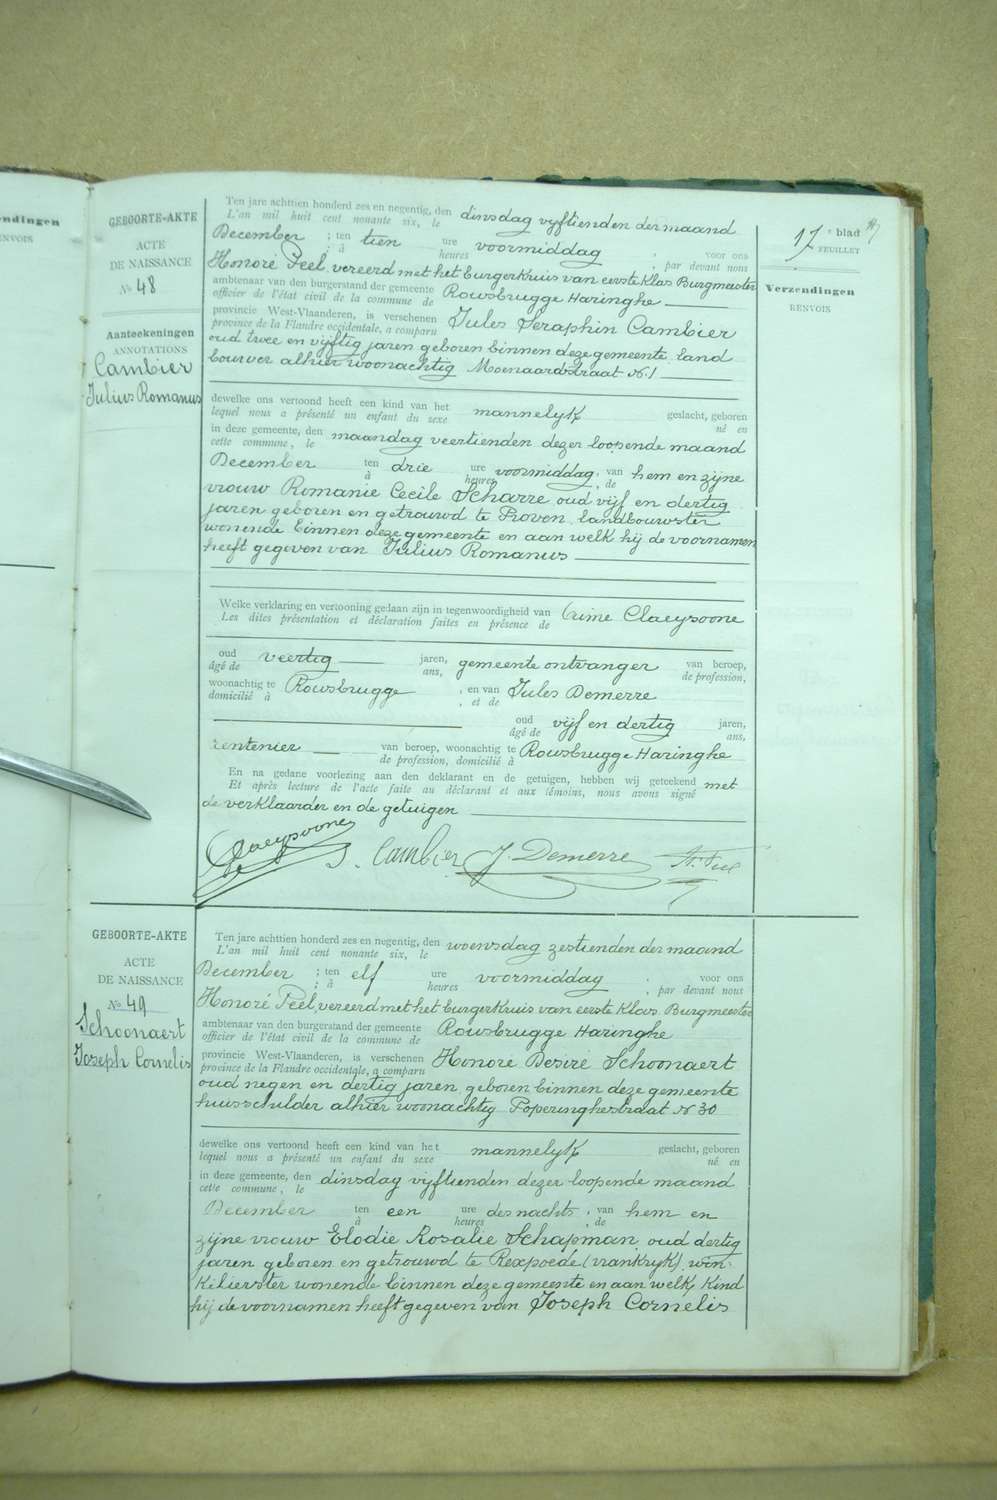 endingen
ENVOIS
17e blad
FEUILLET
Verzendingen
RENVOIS
GEBOORTE-AKTE
ACTE
DE NAISSANCE
No 48
Aanteekeningen
ANNOTATIONS
Cambier
Julius Romanus
Ten jare achttien honderd zes en negentig, den dinsdag vyftienden der maand
L'an mil huit cent nonante six, le
December ; ten tien ure voormiddag ; voor ons
; à heures , par devant nous
Honoré Peel, vereerd met het burgerkruis van eerste klas Burgmeester
ambtenaar van den burgerstand der gemeente Rousbrugge Haringhe
officier de l'état civil de la commune de
provincie West-Vlaanderen, is verschenen Jules Seraphin Cambier
province de la Flandre occidentale, a comparu
oud twee en vyftig jaren geboren binnen deze gemeente land
bouwer alhier woonachtig Moenaardstraat No 1
dewelke ons vertoond heeft een kind van het mannelyk geslacht, geboren
lequel nous a présenté un enfant du sexe né en
in deze gemeente, den maandag veertienden dezer loopende maand
cette commune, le
December ten drie ure voormiddag, van hem en zijne
à heures , de
vrouw Romanie Cecile Scharre oud vijf en dertig
jaren geboren en getrouwd te Proven, landbouwster
wonende binnen deze gemeente en aan welk hij de voornamen
heeft gegeven van Julius Romanus
Welke verklaring en vertooning gedaan zijn in tegenwoordigheid van Crime Claeysoone
Les dites présentation et déclaration faites en présence de
oud veertig jaren, gemeente ontvanger van beroep,
âgé de ans, de profession,
woonachtig te Rousbrugge , en van Jules Demerre
domicilié à , et de
oud vijf en dertig jaren,
âgé de ans,
rentenier van beroep, woonachtig te Rousbrugge Haringhe
de profession, domicilié à
En na gedane voorlezing aan den deklarant en de getuigen, hebben wij geteekend met
Et après lecture de l'acte faite au déclarant et aux témoins, nous avons signé
de verklaarder en de getuigen
Claeysoone J. Cambier J. Demerre H. Peel
GEBOORTE-AKTE
ACTE
DE NAISSANCE
No 49
Schoonaert
Joseph Cornelis
Ten jare achttien honderd zes en negentig, den woensdag zestienden der maand
L'an mil huit cent nonante six, le
December ; ten elf ure voormiddag ; voor ons
; à heures , par devant nous
Honoré Peel, vereerd met het burgerkruis van eerste klas Burgmeester
ambtenaar van den burgerstand der gemeente Rousbrugge Haringhe
officier de l'état civil de la commune de
provincie West-Vlaanderen, is verschenen Honoré Desiré Schoonaert
province de la Flandre occidentale, a comparu
oud negen en dertig jaren geboren binnen deze gemeente
huisschilder alhier woonachtig Poperinghestraat No 30
dewelke ons vertoond heeft een kind van het mannelyk geslacht, geboren
lequel nous a présenté un enfant du sexe né en
in deze gemeente, den dinsdag vijftienden dezer loopende maand
cette commune, le
December ten een ure des nachts, van hem en
à heures , de
zijne vrouw Elodie Rosalie Schapman oud dertig
jaren geboren en getrouwd te Rexpoede (vrankryk) win-
kelierster wonende binnen deze gemeente en aan welk kind
hij de voornamen heeft gegeven van Joseph Cornelis